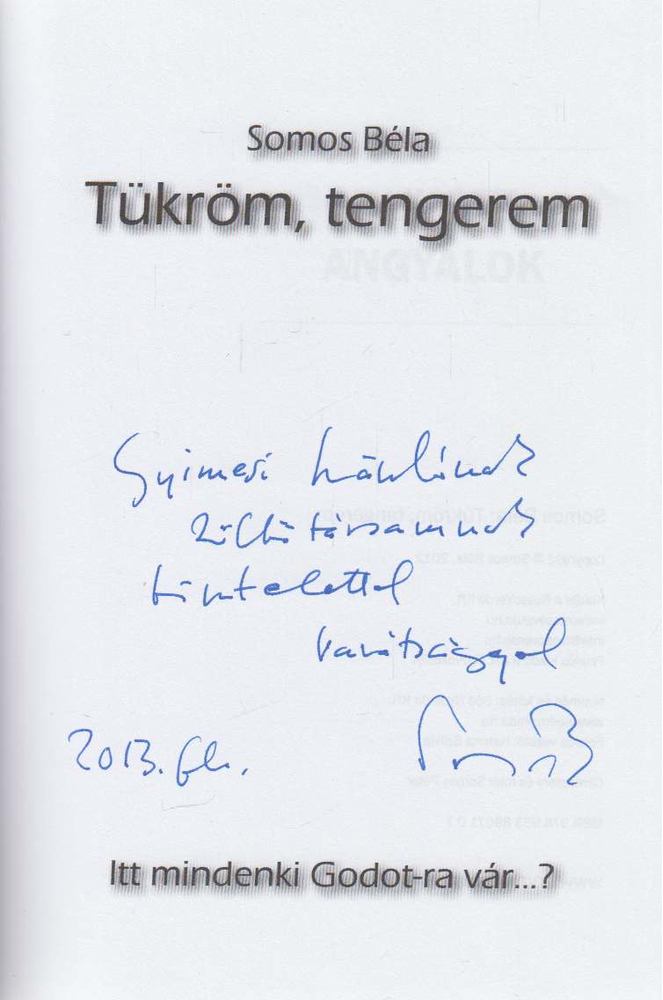 Somos Béla
Tükröm, tengerem
Gyimesi Lászlónak
költőtársamnak
tisztelettel
barátsággal
2013. febr.
Itt mindenki Godot-ra vár...?